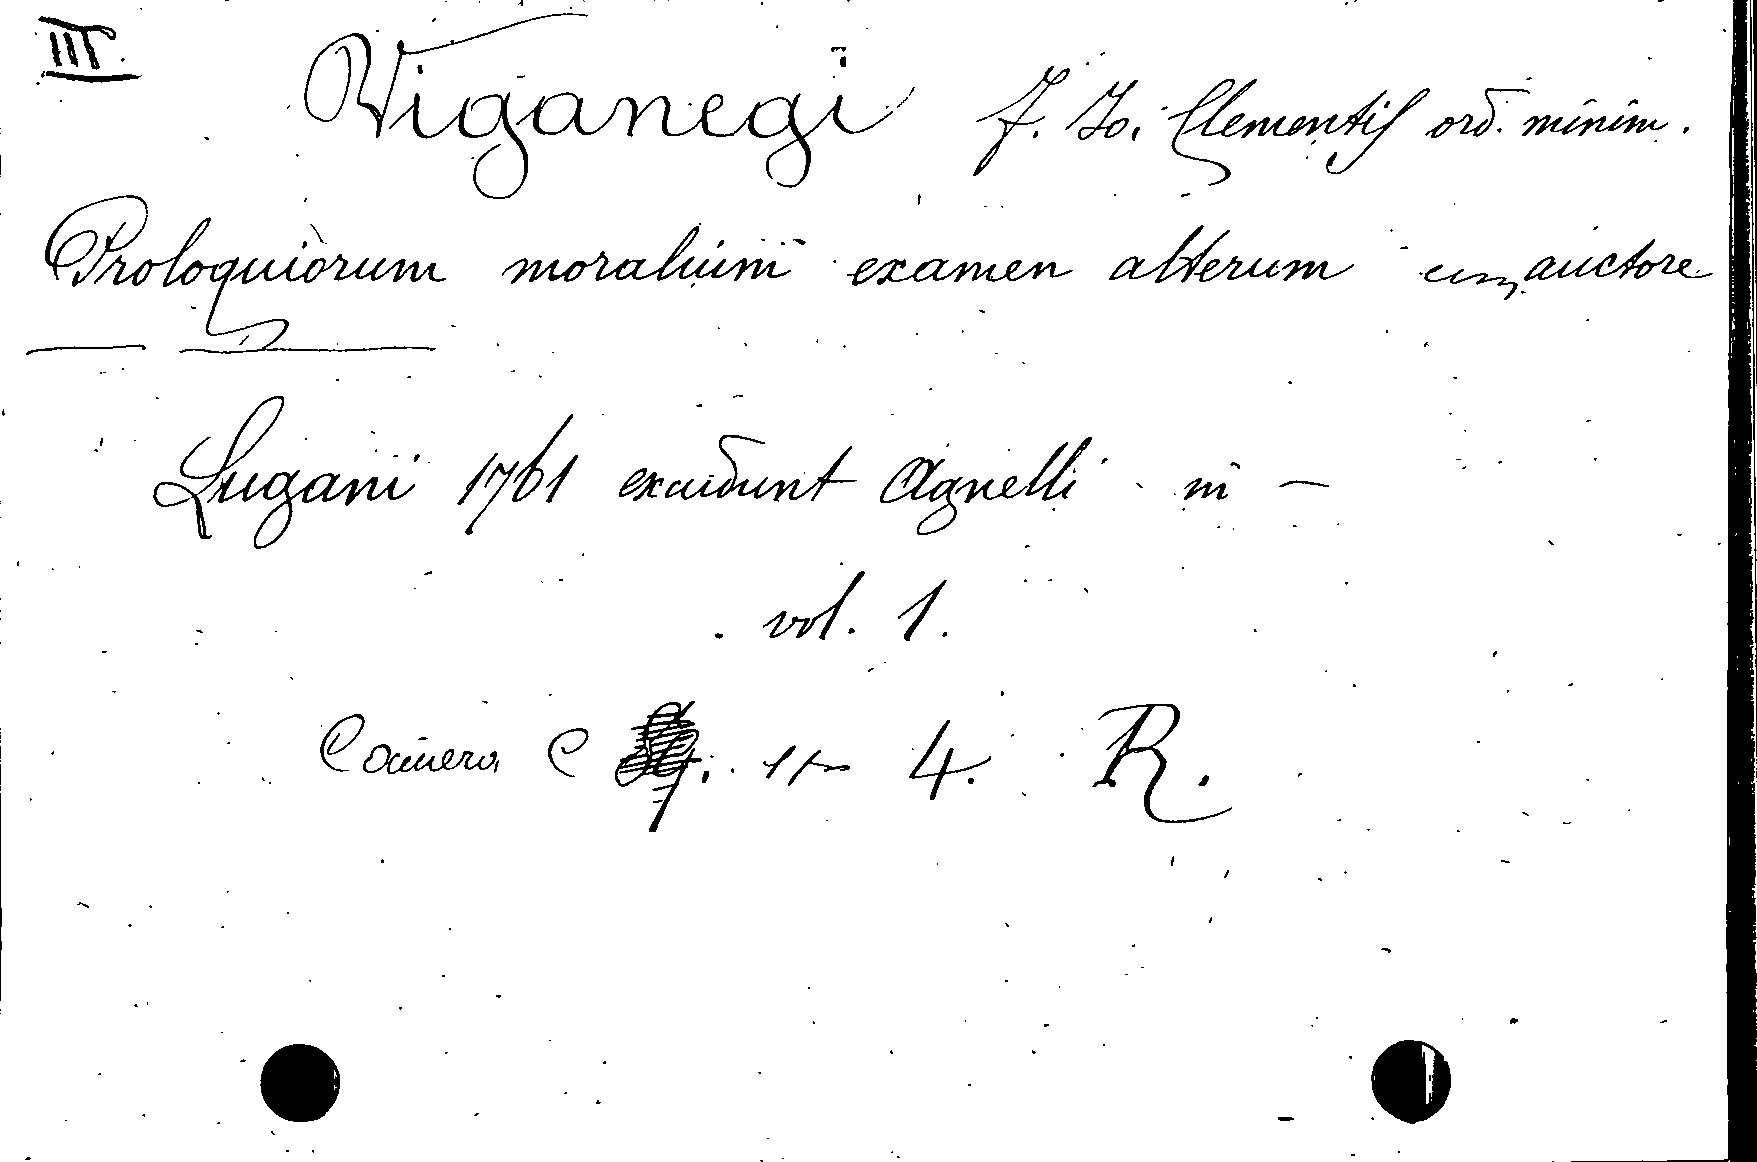 III.
Viganegi F. Jo. Clementis ord. minim.
Proloquiorum moralium examen alterum auctore
Lugani 1761 excudunt Agnelli in —
vol. 1.
Camera C 4. R.